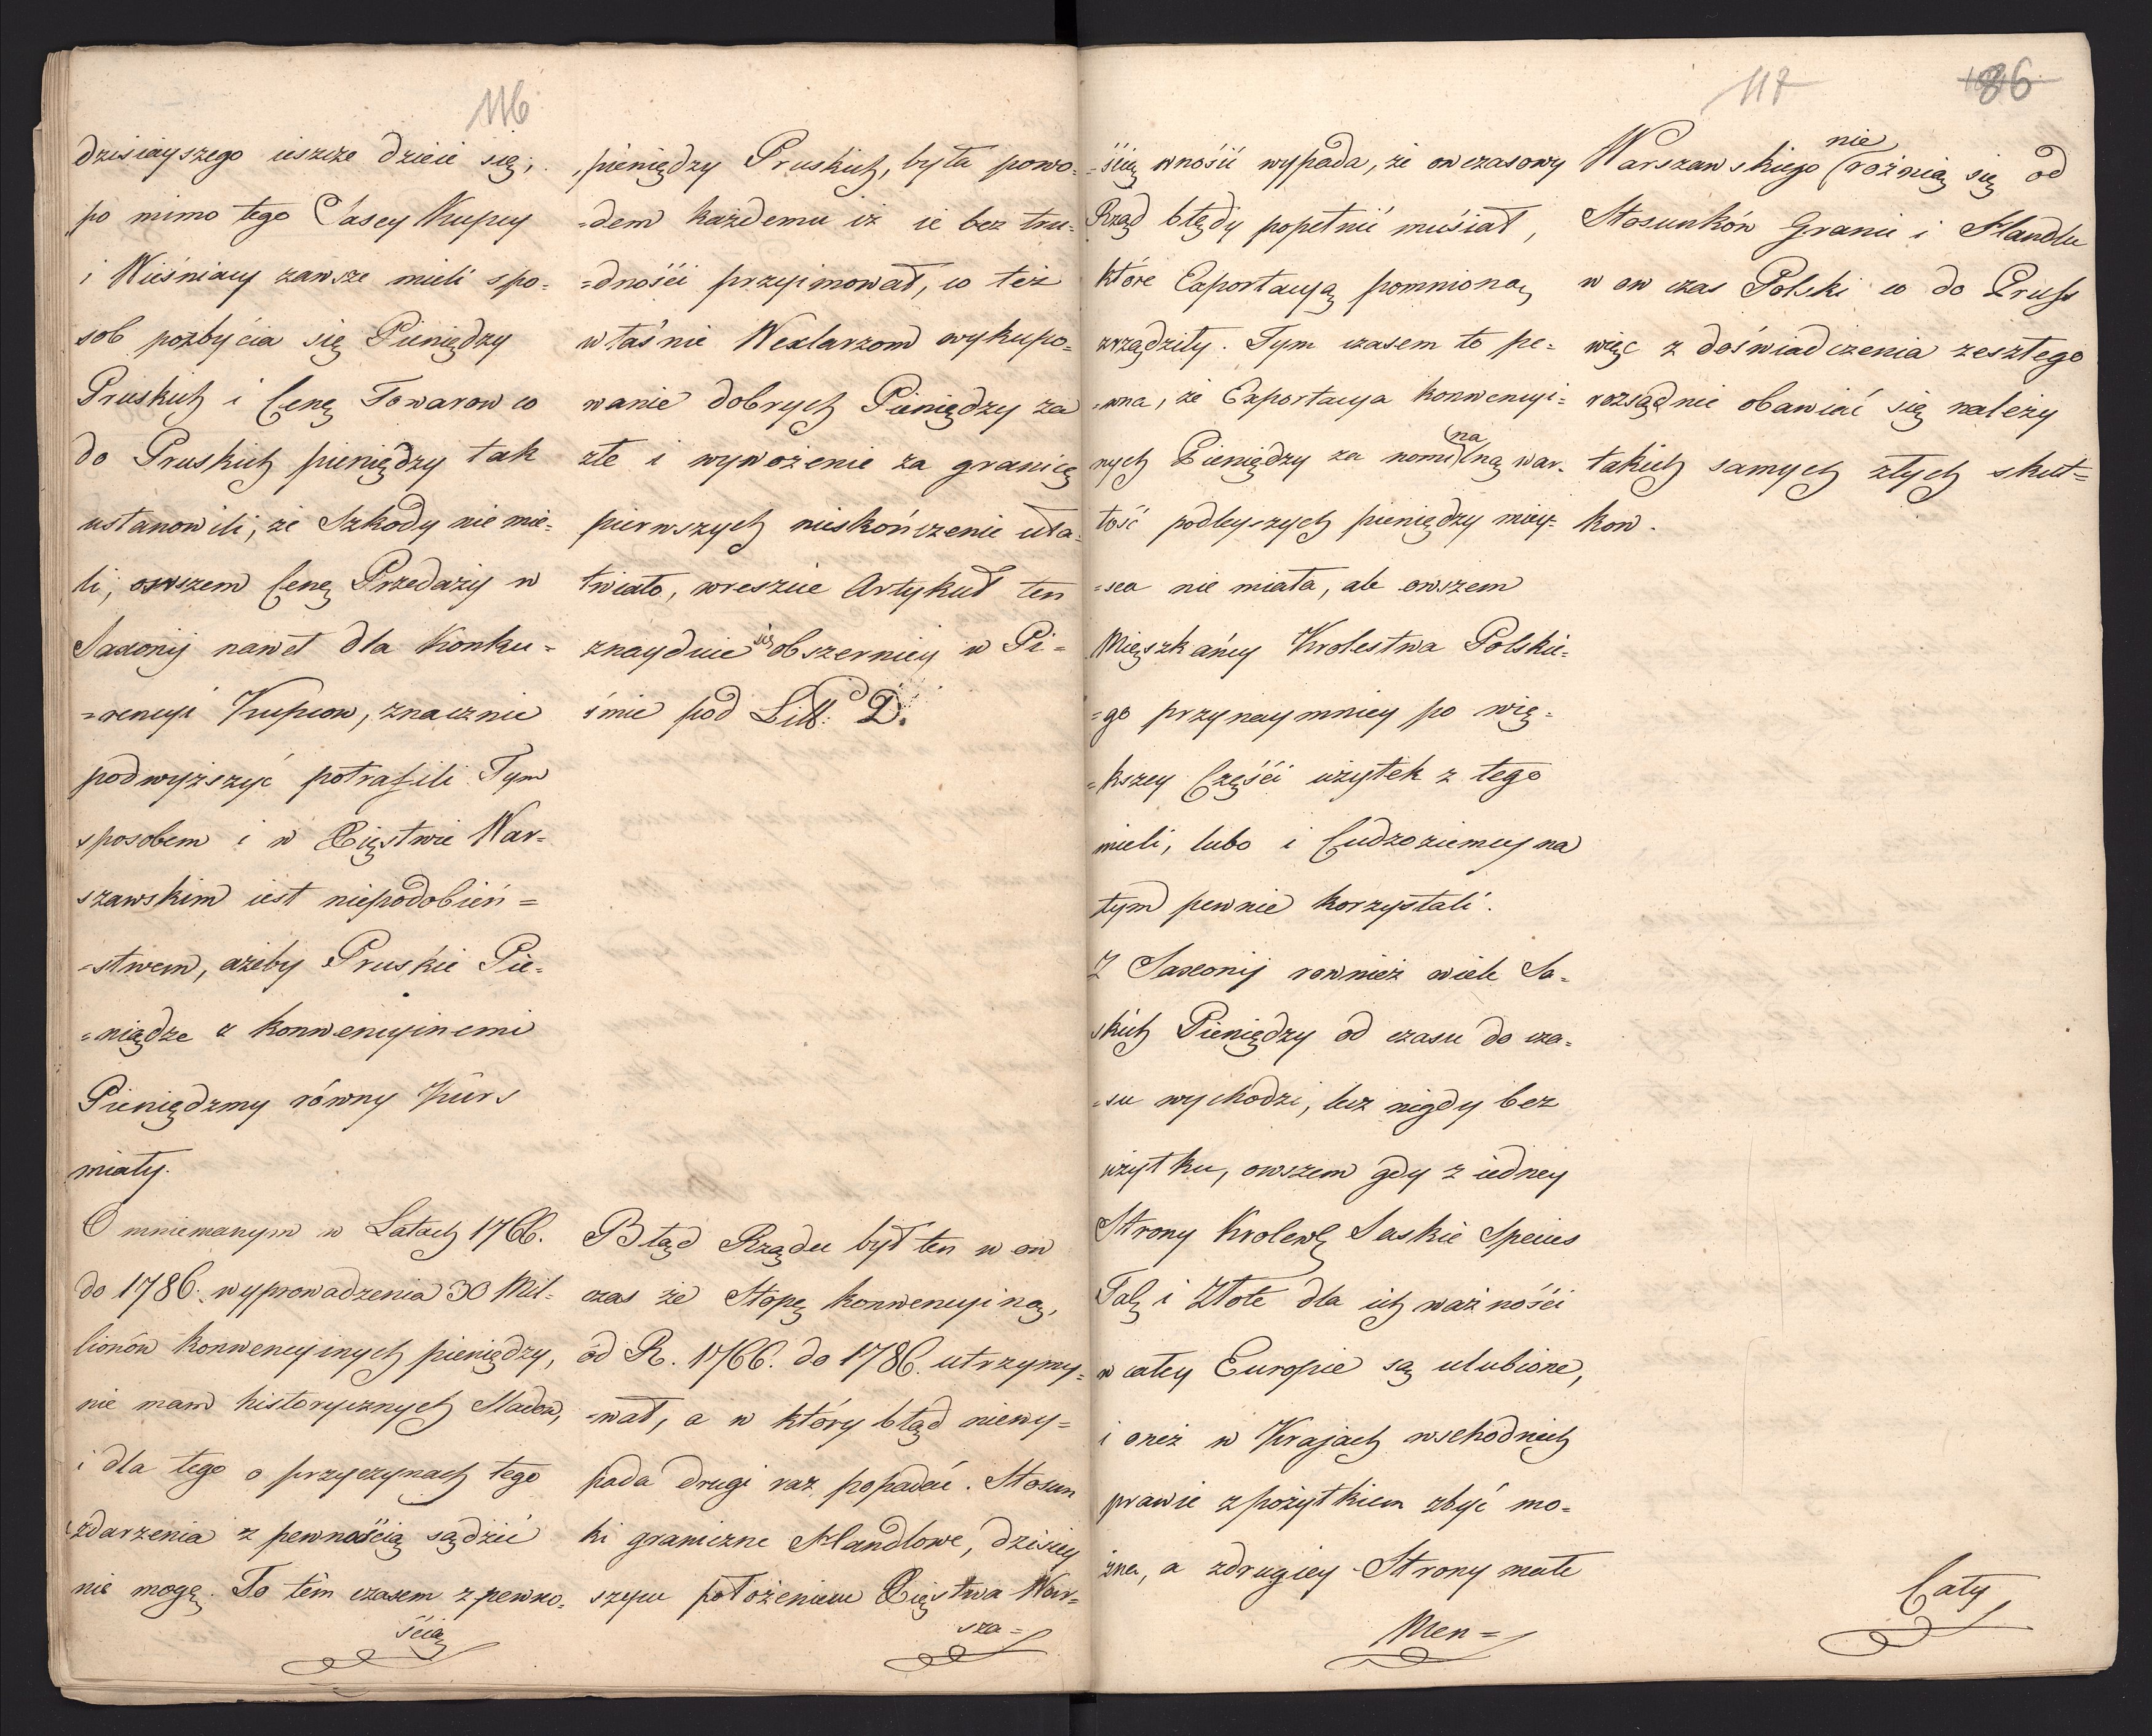 116
dzisiayszego ieszcze dzieie się,
po mimo tego Sascy Kupcy
i Wieśniacy zawsze mieli spo-
sob pozbycia się Pieniędzy
Pruskich i Cenę Towarow co
do Pruskich pieniędzy tak
ustanowili, że Szkody nie mie-
li, owszem Cenę Przedaży w
Saxonij nawet dla Konku=
=rencyi Kupcow, znacznie
podwyższyć potrafili Tym
sposobem i w Xięstwie War-
szawskim iest niepodobień=
=stwem, ażeby Pruskie Pie-
=niądze z konwencyinemi
Pieniędzmy równy Kurs
miały.
O mniemanym w Latach 1766.
do 1786. wyprowadzenia 30 Mil-
lionów konwencyinych pieniędzy,
nie mam historycznych
i dla tego o przyczynach tego
zdarzenia z pewnością sądzić
nie mogę. To tém czasem z pewno-
ścią
pieniędzy Pruskich, była powo-
=dem każdemu iż ie bez tru-
=dności przyimował, co też
właśnie Wexlarzom wykupo-
wanie dobrych Pieniędzy za
złe i wywożenie za granicę
pierwszych nieskończenie uła-
twiało, wreszcie Artykuł ten
znayduie się obszerniey w Pi=
śmie pod Litt: D.
Błąd Rządu był ten w on
czas że Stopę konwencyiną,
od R. 1766. do 1786. utrzymy-
=wał, a w który błąd niewy=
pada drugi raz popadać. Stosun
ki graniczne Handlowe, dzisiey
szemu położeniu Xięstwa War=
sza=
117
86
=ścią wnosić wypada, że owczasowy
Rząd błędy popełnić musiał,
które Exportacyą pomnioną
zrządziły. Tym czasem to pe-
=wna, że Exportacya konwencyi=
nych Pieniędzy za nominalną war-
tość podleyszych pieniędzy miey-
=sca nie miała, ale owszem
Mieszkańcy Krolestwa Polskie-
=go przynaymniey po wię-
=kszey Części użytek z tego
mieli, lubo i Cudzoziemcy na
tym pewnie korzystali.
Z Saxonij rownież wiele Sa-
skich Pieniędzy od czasu do cza-
=su wychodzi, lecz nigdy bez
użytku, owszem gdy z iedney
Strony Krolew Saskie Species
Tal i Złote dla ich ważności
w całey Europie są ulubione,
i oneż w Krajach wschodnich
prawie z pożytkiem zbyć mo-
żna, a zdrugiey Strony małe
Men=
Warszawskiego nie rożnią się od
Stosunków Granic i Handlu
w ow czas Polski co do Pruss
więc z doświadczenia zeszłego
rozsądnie obawiać się należy
takich samych złych skut=
kow.
Cały